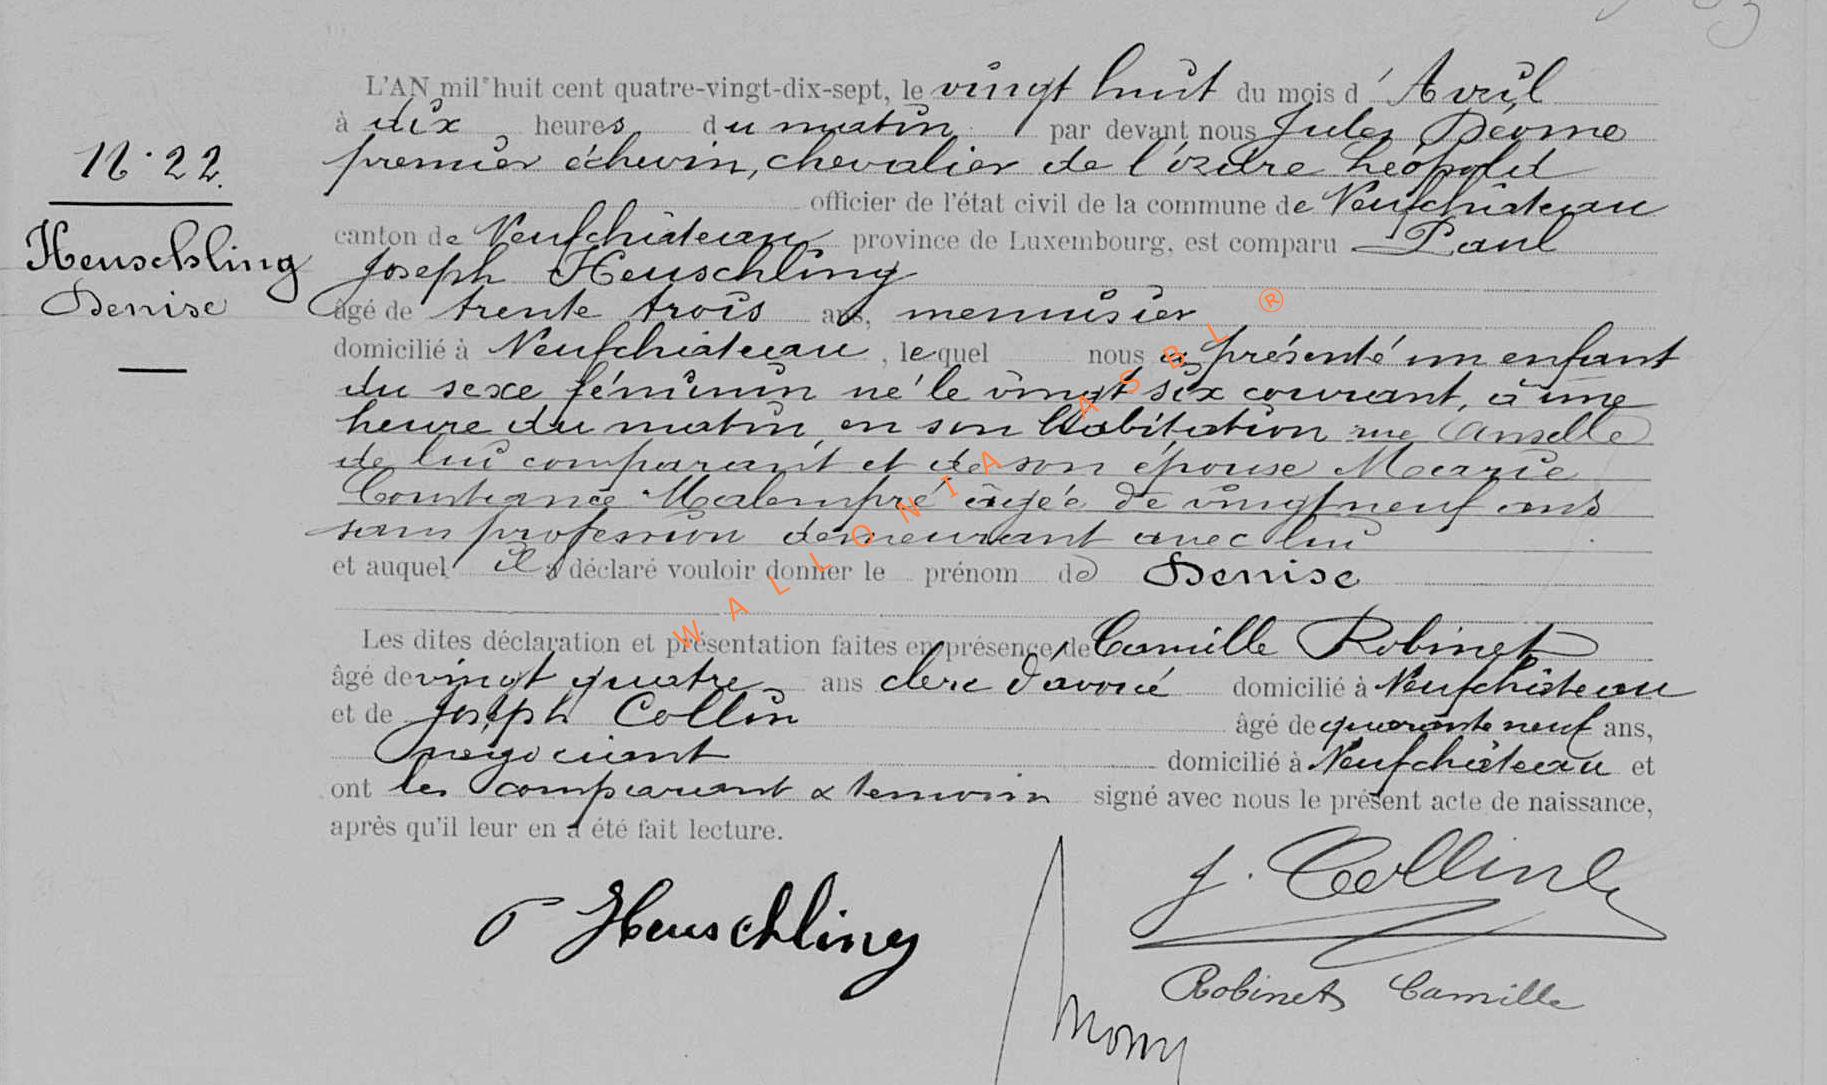 N. 22.
Heuschling
Denise
L'AN mil huit cent quatre-vingt-dix-sept, le vingt huit du mois d'Avril
à dix heures du matin par devant nous Jules Déome
premier échevin, chevalier de l'ordre Léopold
officier de l'état civil de la commune de Neufchâteau
canton de Neufchâteau province de Luxembourg, est comparu Paul
Joseph Heuschling
âgé de trente trois ans, menuisier
domicilié à Neufchâteau, lequel nous a présenté un enfant
du sexe féminin né le vingt six courant, à une
heure du matin, en son habitation rue
de lui comparant et de son épouse Marie
Constance Malempré âgée de vingt neuf ans
sans profession demeurant avec lui
et auquel il a déclaré vouloir donner le prénom de Denise
Les dites déclaration et présentation faites en présence de Camille Robinet
âgé de vingt quatre ans clerc d'avoué domicilié à Neufchâteau
et de Joseph Collin âgé de quarante neuf ans,
négociant domicilié à Neufchâteau et
ont les comparant & temoin signé avec nous le présent acte de naissance,
après qu'il leur en a été fait lecture.
P Heuschling
J. Collin
Robinet Camille
WALLONIA ASBL ®